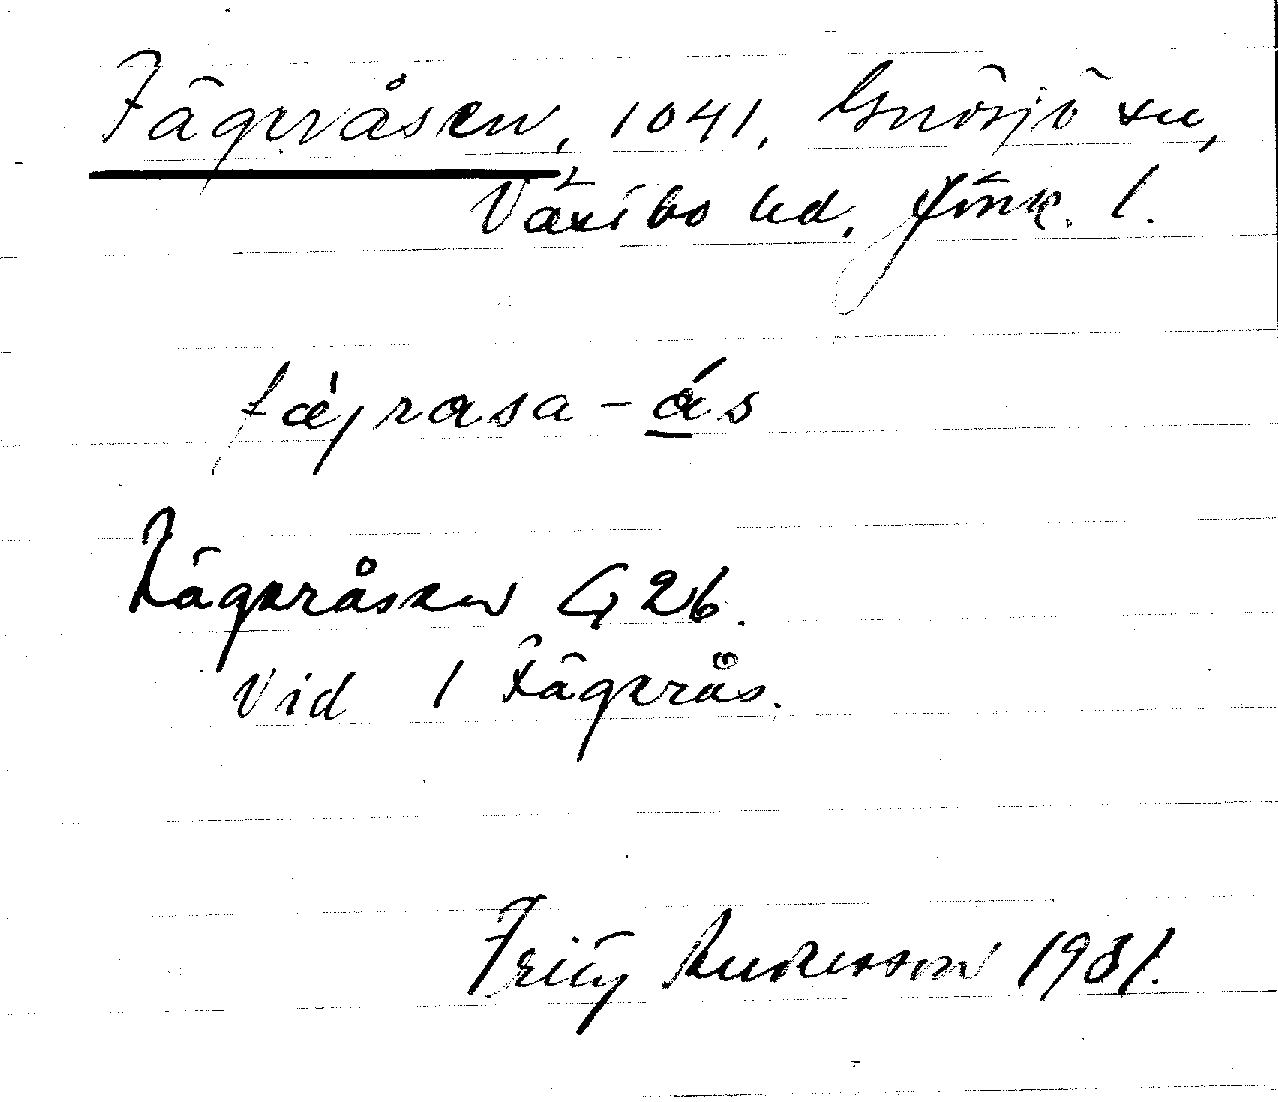 Fägeråsen, 1041, Gnosjö sn,
Västbo hd, Jönk. l.
fäjrasa-ås
Fägeråsen G 26.
Vid 1 Fägerås.
Fritz Andersson 1931.